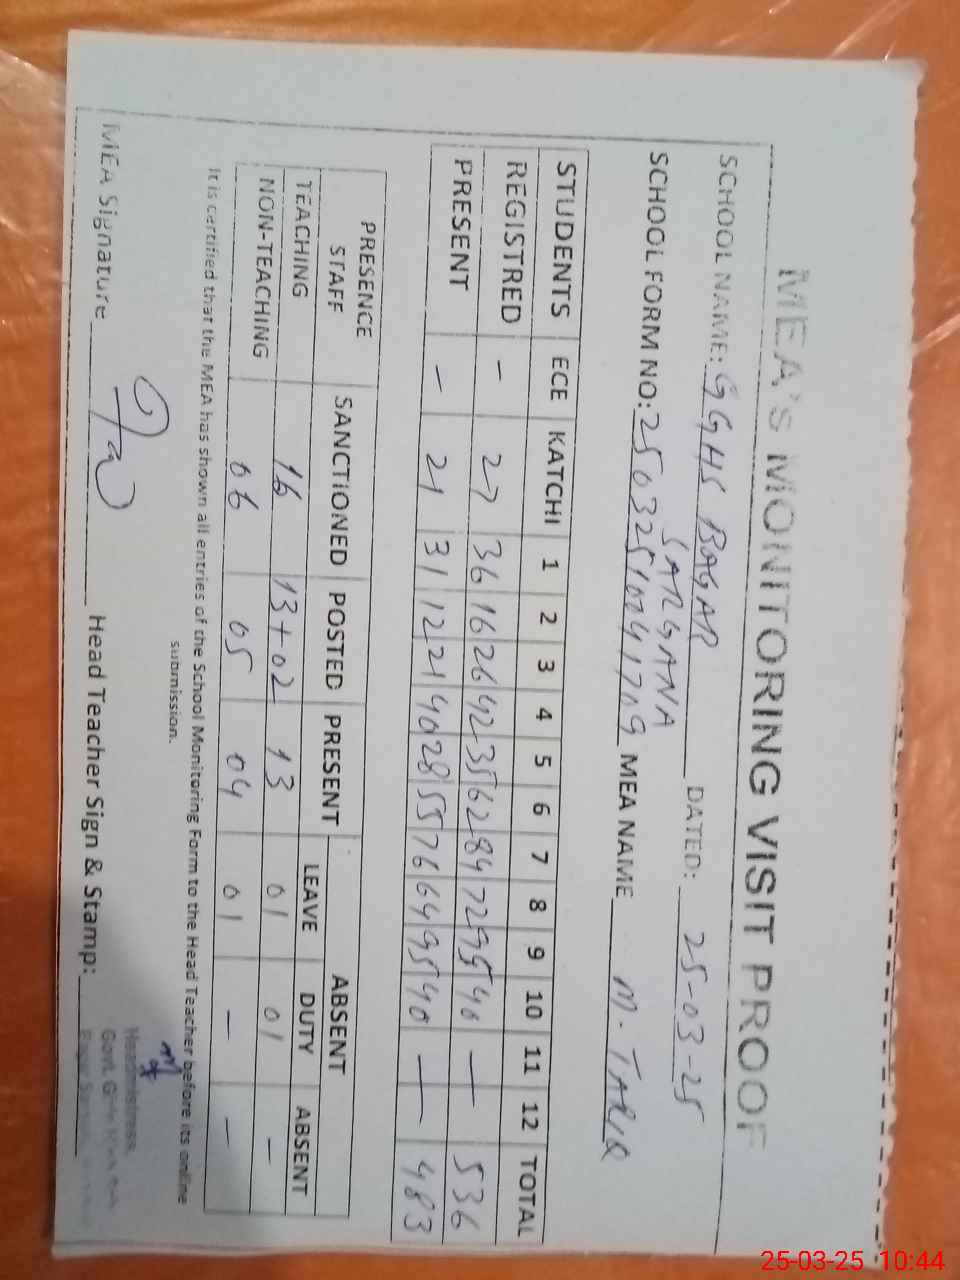 MEA'S MONITORING VISIT PROOF
SCHOOL NAME: GGHS BAGAR SARGANA DATED: 25-03-25
SCHOOL FORM NO: MEA NAME M. TARIQ
STUDENTS ECE KATCHI 1 2 3 4 5 6 7 8 9 10 11 12 TOTAL
REGISTRED – 27 36 16 26 42 35 62 84 72 40 — 536
PRESENT – 21 31 12 21 40 28 55 76 64 95 40 — 483
PRESENCE STAFF SANCTIONED POSTED PRESENT ABSENT
LEAVE DUTY ABSENT
TEACHING 16 13+02 13 01 01 –
NON-TEACHING 06 05 04 01 – –
It is certified that the MEA has shown all entries of the School Monitoring Form to the Head Teacher before its online
submission.
MEA Signature Head Teacher Sign & Stamp:
Headmistress,
Govt. Girls High
25-03-25 10:44